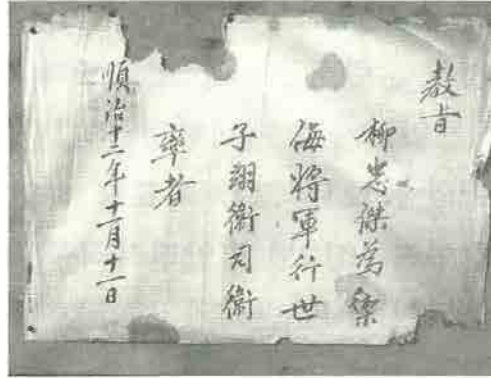 教旨
柳忠傑為禦
侮將軍行世
子翊衛司衛
率者
順治十二年十一月十一日